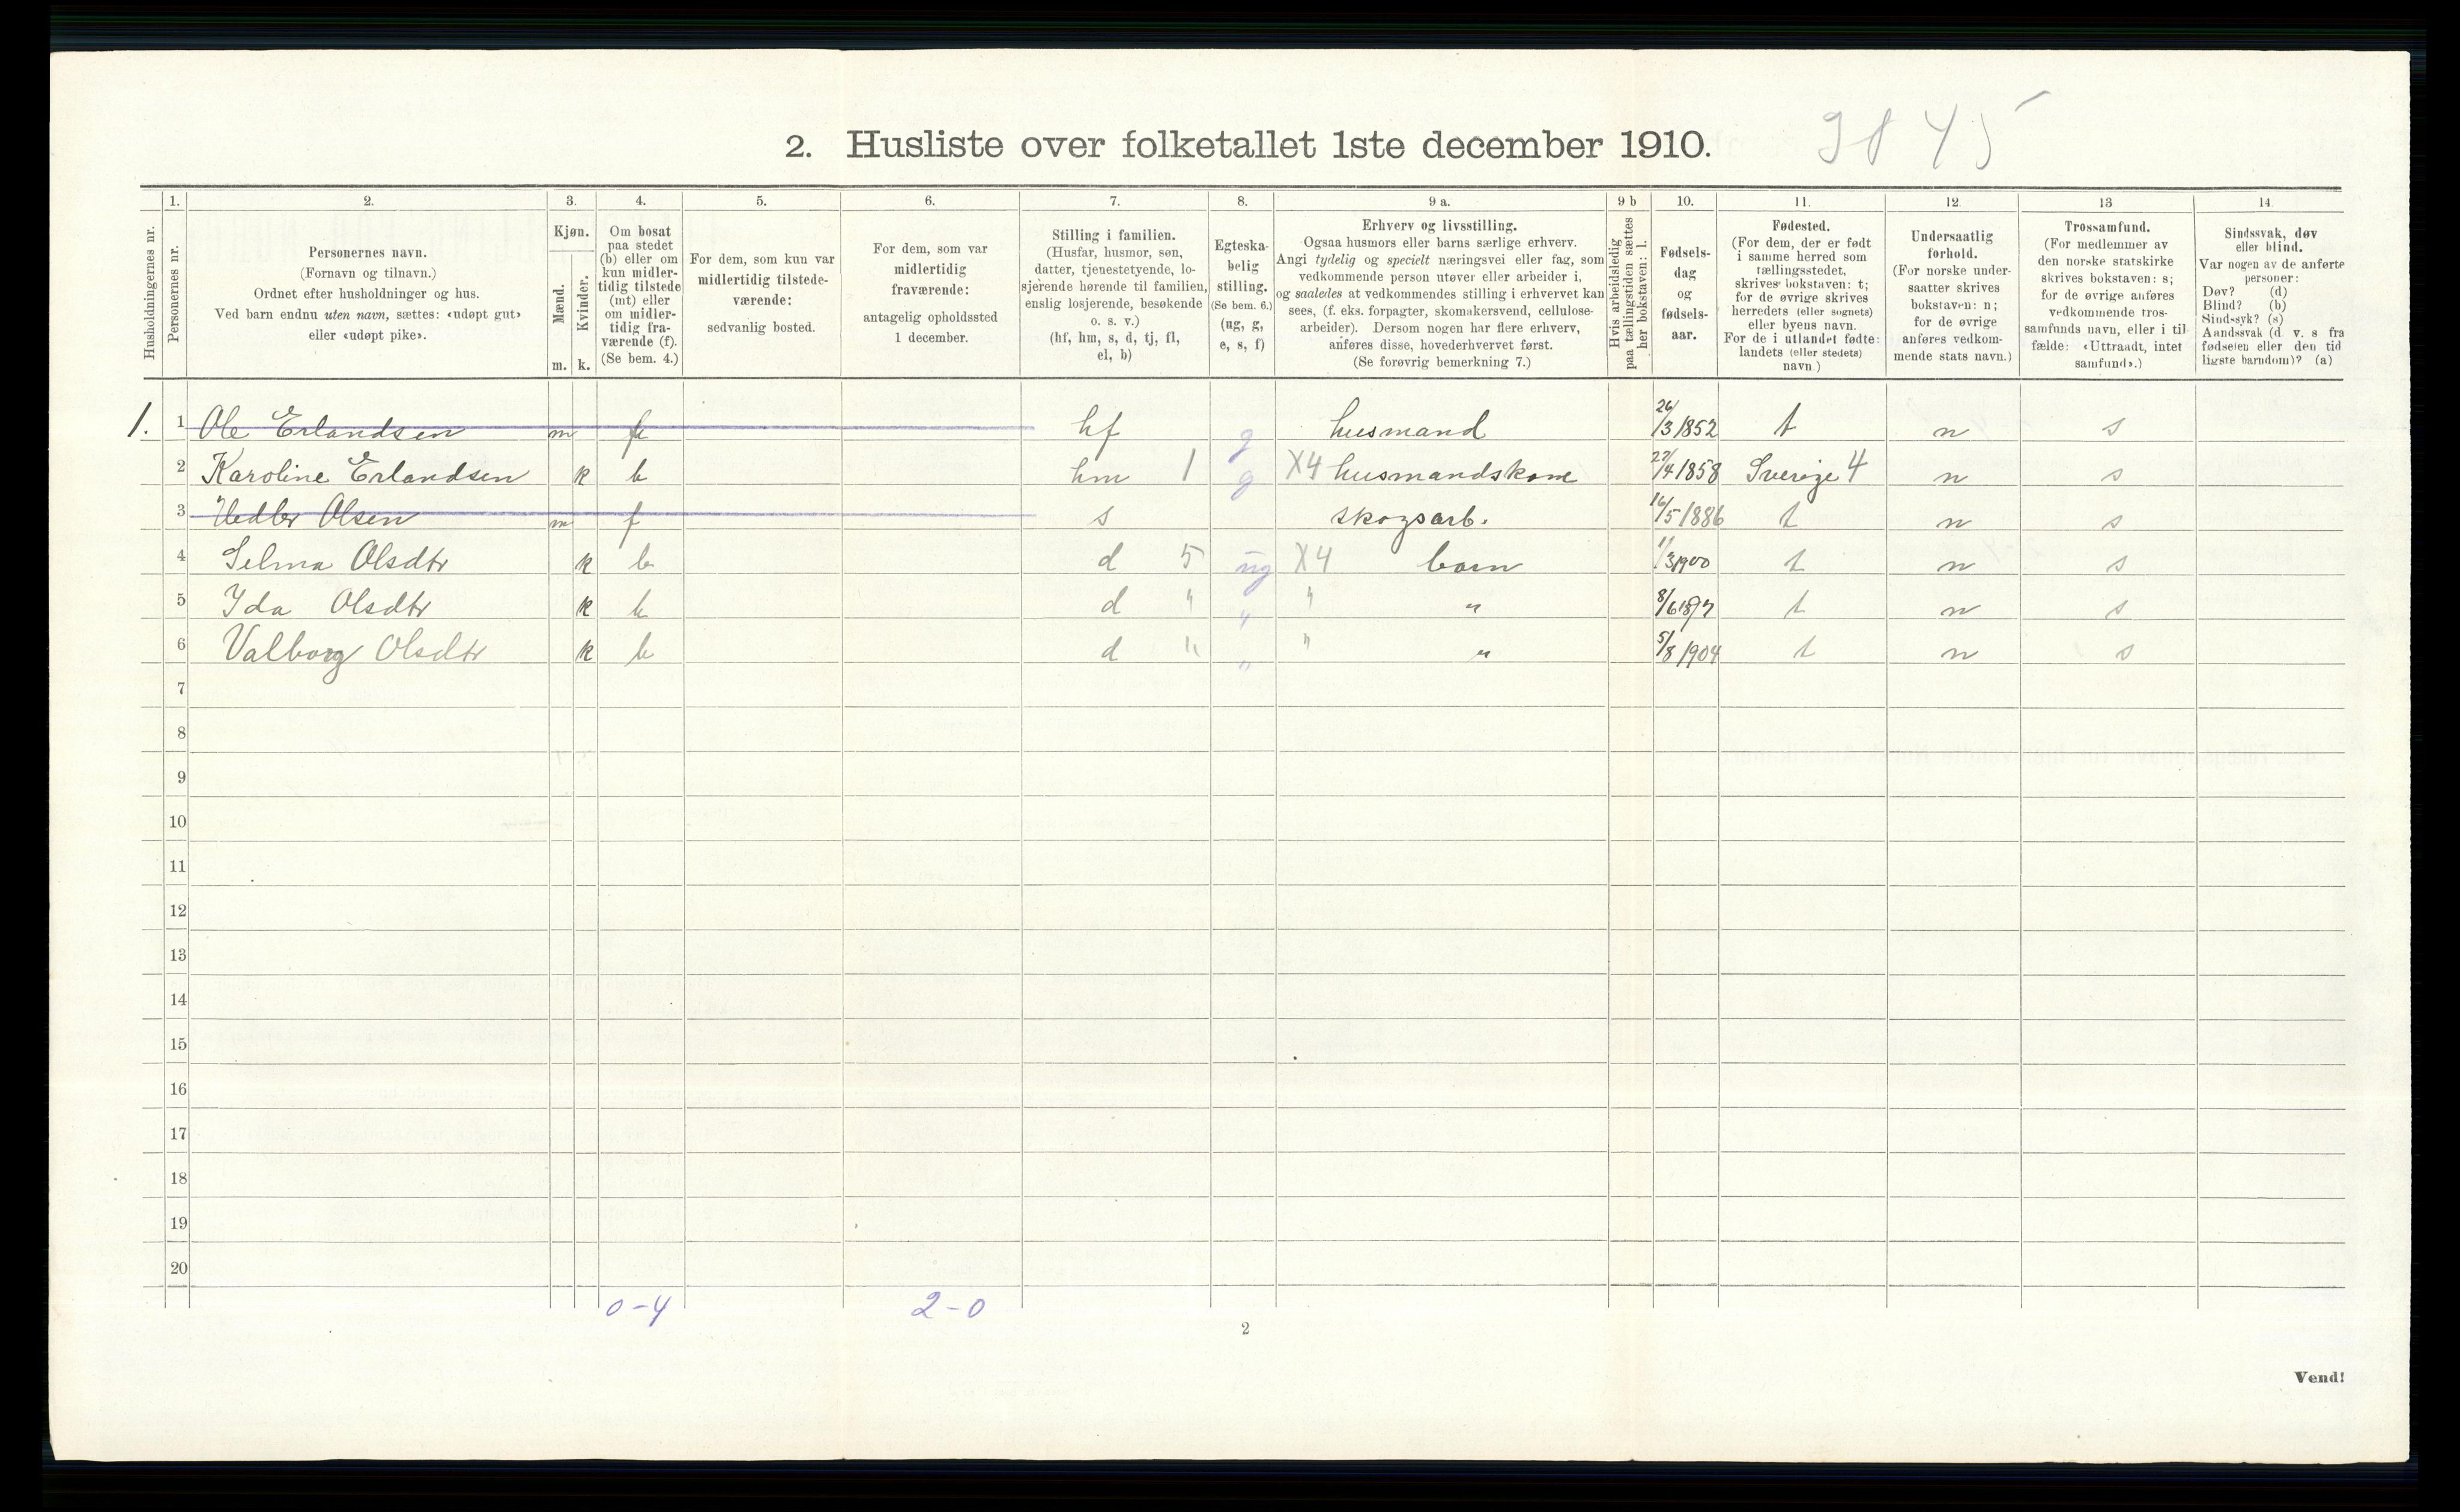 9845
2. Husliste over folketallet 1ste december 1910.
1. 2. 3. 4. 5. 6. 7. 8. 9 a. 9 b 10. 11. 12. 13 14
Husholdningernes nr.
Personernes nr.
Personernes navn.
(Fornavn og tilnavn.)
Ordnet efter husholdninger og hus.
Ved barn endnu uten navn, sættes: «udøpt gut»
eller «udøpt pike».
Kjøn.
Mænd.
Kvinder.
m. k.
Om bosat
paa stedet
(b) eller om
kun midler-
tidig tilstede
(mt) eller
om midler-
tidig fra-
værende (f).
(Se bem. 4.)
For dem, som kun var
midlertidig tilstede-
værende:
sedvanlig bosted.
For dem, som var
midlertidig
fraværende:
antagelig opholdssted
1 december.
Stilling i familien.
(Husfar, husmor, søn,
datter, tjenestetyende, lo-
sjerende hørende til familien,
enslig losjerende, besøkende
o. s. v.)
(hf, hm, s, d, tj, fl,
el, b)
Egteska-
belig
stilling.
(Se bem. 6.)
(ug, g,
e, s, f)
Erhverv og livsstilling.
Ogsaa husmors eller barns særlige erhverv.
Angi tydelig og specielt næringsvei eller fag, som
vedkommende person utøver eller arbeider i,
og saaledes at vedkommendes stilling i erhvervet kan
sees, (f. eks. forpagter, skomakersvend, cellulose-
arbeider). Dersom nogen har flere erhverv,
anføres disse, hovederhvervet først.
(Se forøvrig bemerkning 7.)
Hvis arbeidsledig
paa tællingstiden sættes
her bokstaven: l.
Fødsels-
dag
og
fødsels-
aar.
Fødested.
(For dem, der er født
i samme herred som
tællingsstedet,
skrives bokstaven: t;
for de øvrige skrives
herredets (eller sognets)
eller byens navn.
For de i utlandet fødte:
landets (eller stedets)
navn.)
Undersaatlig
forhold.
(For norske under-
saatter skrives
bokstaven: n;
for de øvrige
anføres vedkom-
mende stats navn.)
Trossamfund.
(For medlemmer av
den norske statskirke
skrives bokstaven: s;
for de øvrige anføres
vedkommende tros-
samfunds navn, eller i til-
fælde: «Uttraadt, intet
samfund».)
Sindssvak, døv
eller blind.
Var nogen av de anførte
personer:
Døv? (d)
Blind? (b)
Sindssyk? (s)
Aandssvak (d. v. s. fra
fødselen eller den tid
ligste barndom)? (a)
1. 1 Ole Erlandsen m f hf g husmand 26/3 1852 t n s
2 Karoline Erlandsen k b hm 1 g X4 husmandskone 27/4 1858 Sverige 4 n s
3 Olsen m f s skogsarb. 16/5 1886 t n s
4 Selma Olsdtr k b d 5 ug X4 barn 11/3 1900 t n s
5 Ida Olsdtr k b d " " " " 8/6 1897 t n s
6 Valborg Olsdtr k b d " " " " 5/8 1904 t n s
7
8
9
10
11
12
13
14
15
16
17
18
19
20
0-4 2-0
2
Vend!